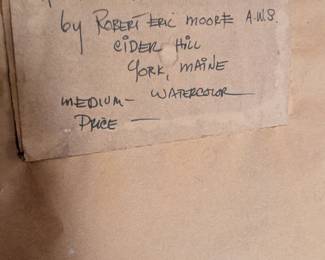 by ROBERT ERIC MOORE A.W.S.
CIDER HILL
YORK, MAINE
MEDIUM — WATERCOLOR
PRICE —